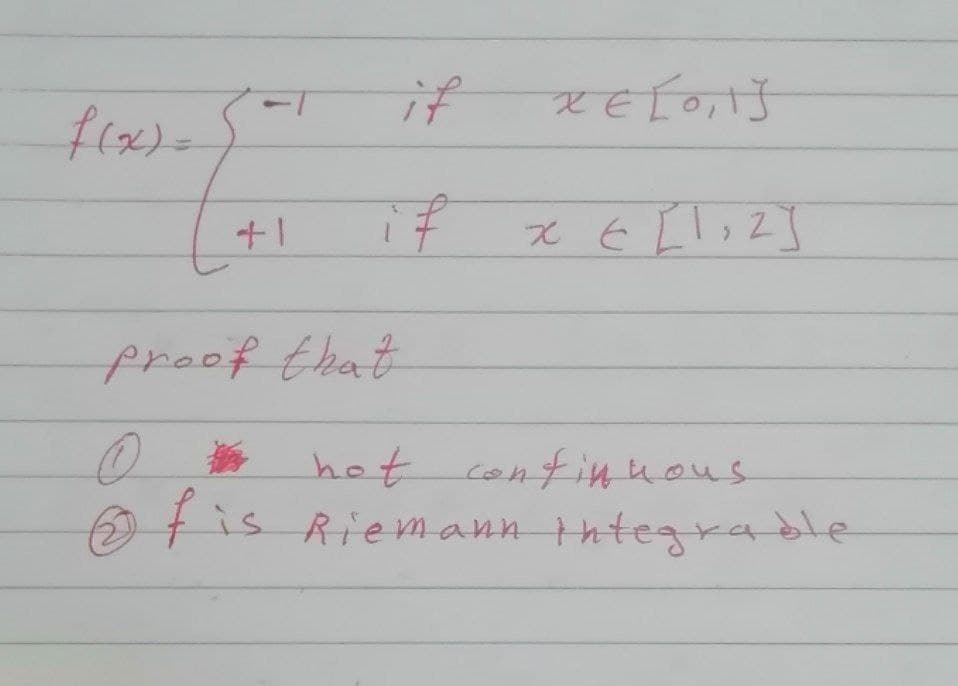 f(x) = { -1 if x ∈ [0,1]
+1 if x ∈ [1,2]
proof that
① not continuous
② f is Riemann integrable